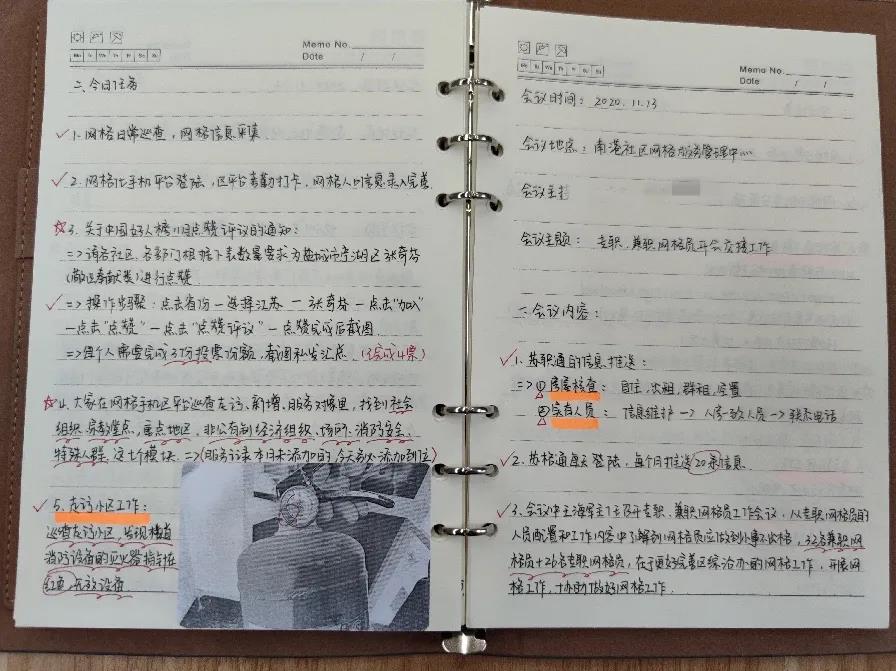 Memo No.
Mo Tu We Th Fr Sa Su
Date / /
二、今日任务
1. 网格日常巡查，网格信息采集
2. 网格化手机平台登陆，区平台考勤打卡，网格人口信息录入完善
3. 关于中国好人榜11月点赞评议的通知：
=> 请各社区、各部门根据下表数量要求为盐城市亭湖区张育芬
进行点赞
=> 操作步骤：点击省份 — 选择江苏 — 张育芬 — 点击“加入”
— 点击“点赞” — 点击“点赞评议” — 点赞完成后截图
=> 每个人需要完成3份投票份额，截图私发汇总.（完成4票）
4. 大家在网格手机区平台巡查走访、新增、服务对象里，找到社会
组织、宗教堂点、重点地区、非公有制经济组织、场所、消防安全、
特殊人群 这七个模块. =>（服务记录本月未添加的，今天务必添加到位）
5. 走访小区工作：
巡查走访小区，发现楼道
消防设备的灭火器指针在
红色，无效设备
Memo No.
Mo Tu We Th Fr Sa Su
Date / /
会议时间：2020.11.13
会议地点：南港社区网格服务管理中…
会议主持
会议主题：专职、兼职网格员开会交接工作
一、会议内容：
1. 苏职通的信息推送：
=> ① 房屋核查：自主，出租，群租，空置
② 实有人员：信息维护 —> 人房一致人员 —> 联系电话
2. 苏格通每天登陆，每个月推送20条信息.
3. 会议中王海军主任召开专职、兼职网格员工作会议，从专职网格员的
人员配置和工作内容中了解到网格员应做到小事不出格，32名兼职网
格员+26名专职网格员，在于更好完善区综治办的网格工作，开展网
格工作，协助做好网格工作.